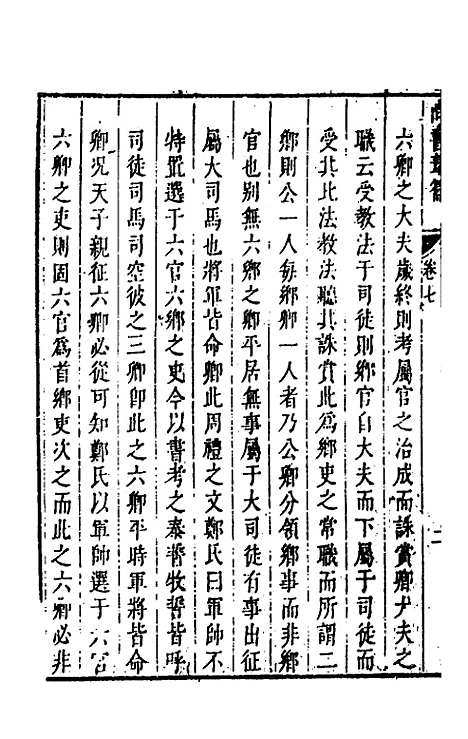 六卿之大夫歲終則考屬官之治成而誅賞鄉大夫之
職云受教法于司徒則鄉官自大夫而下屬于司徒而
受其比法教法聽其誅賞此爲鄉吏之常職而所謂二
鄉則公一人每鄉卿一人者乃公卿分領鄉事而非鄉
官也别無六鄉之卿平居無事屬于大司徒有事出征
屬大司馬也將軍皆命卿此周禮之文鄭氏曰軍帥不
特置選于六官六鄉之吏今以書考之泰誓牧誓皆呼
司徒司馬司空彼之三卿卽此之六卿平時軍將皆命
卿况天子親征六卿必從可知鄭氏以軍帥選于六官
六鄉之吏則固六官爲首鄉吏次之而此之六卿必非
卷七
二